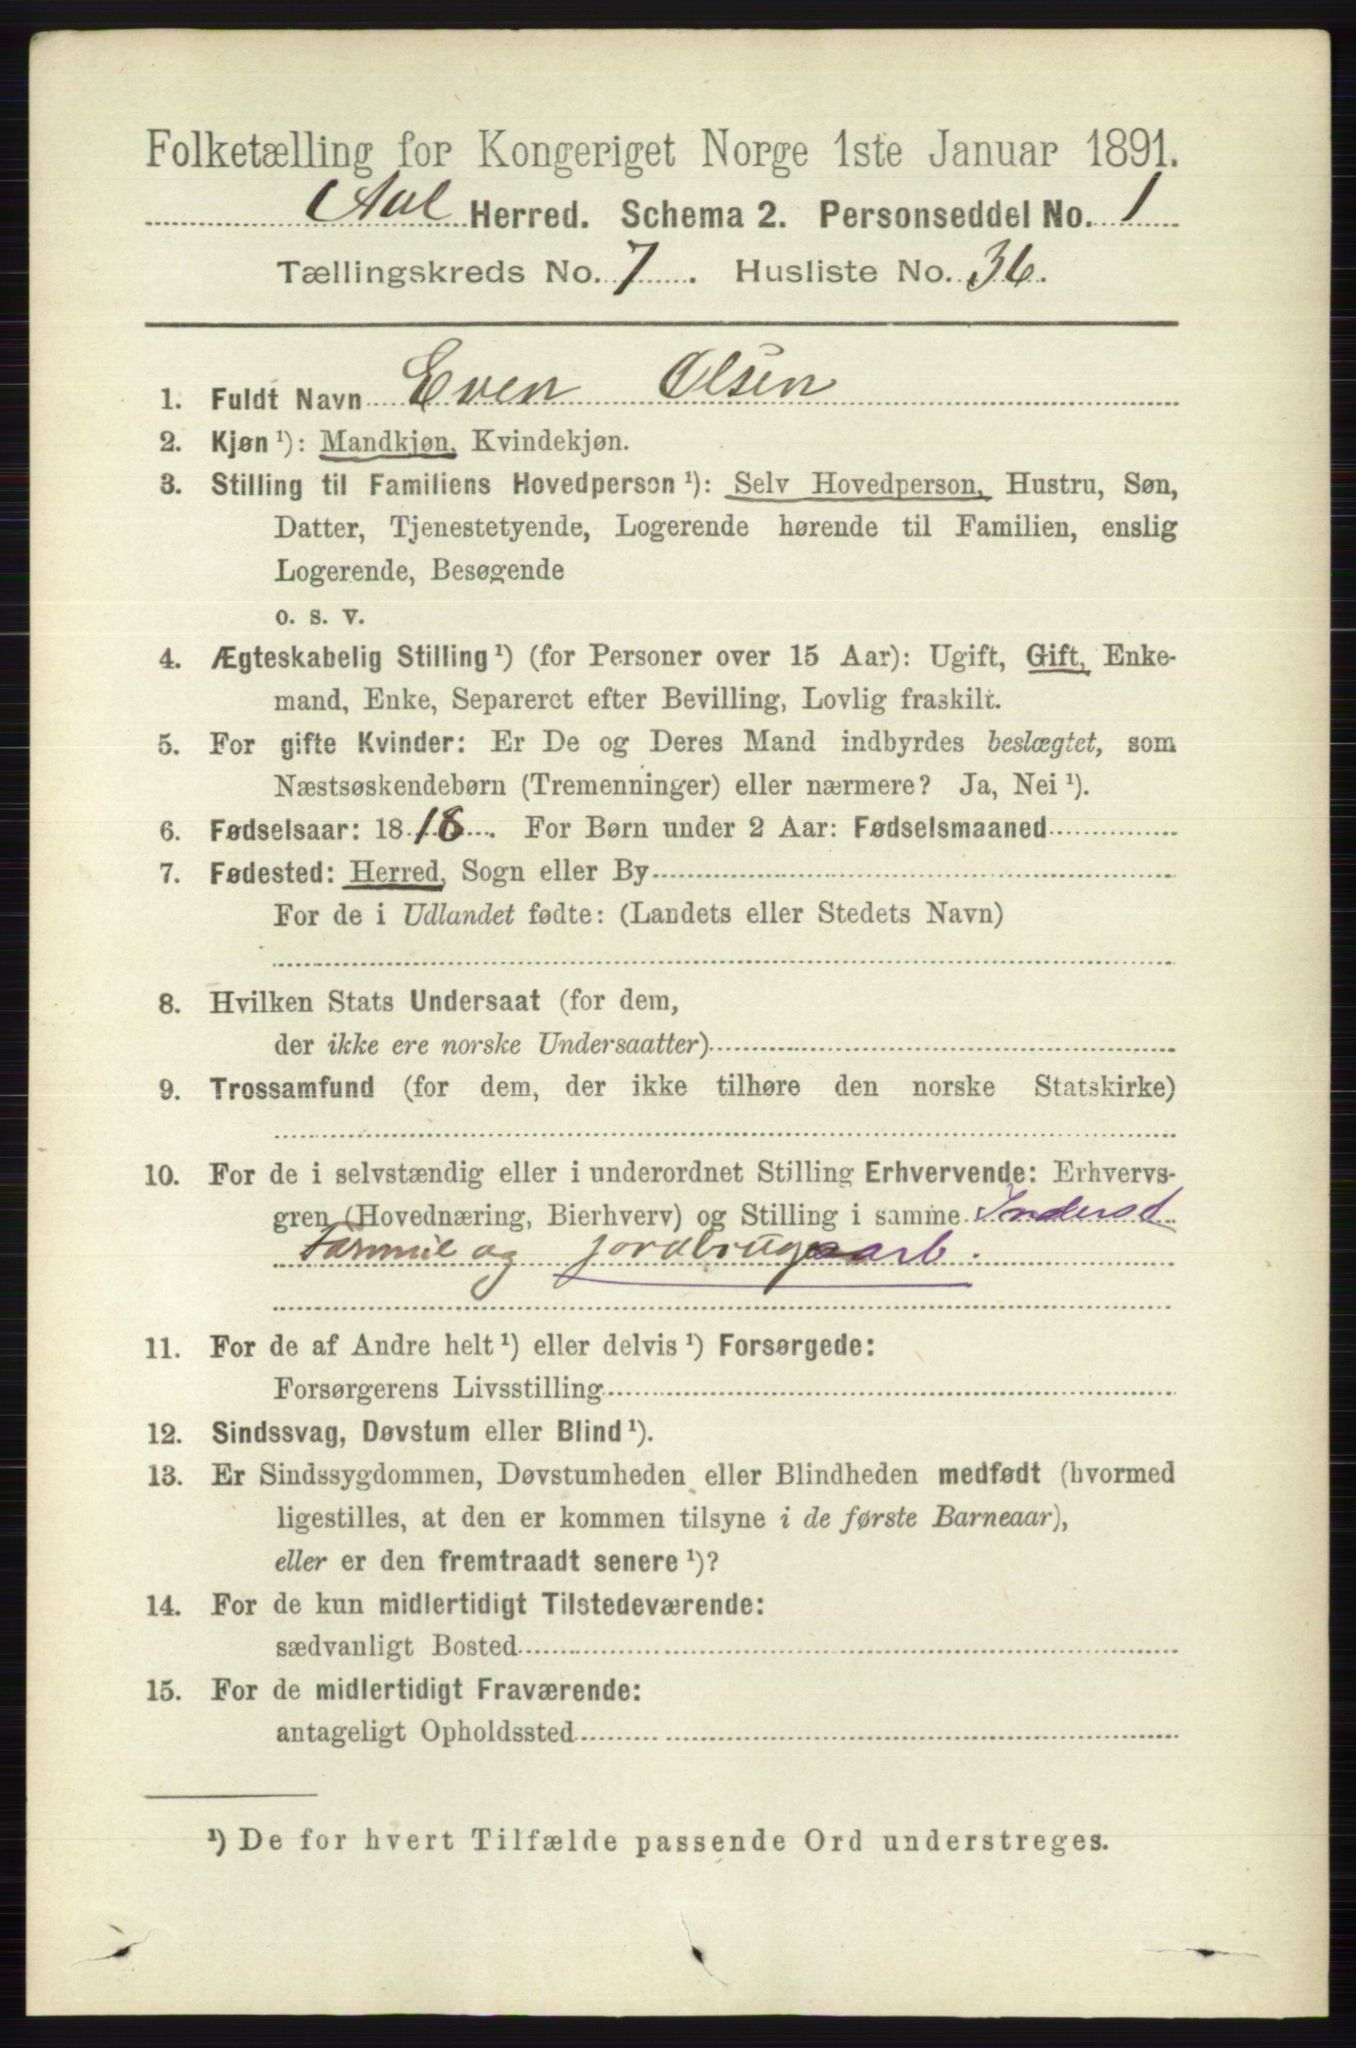 Folketælling for Kongeriget Norge 1ste Januar 1891.
Aal Herred. Schema 2. Personseddel No. 1
Tællingskreds No. 7. Husliste No. 36.
1. Fuldt Navn Even Olsen
2. Kjøn ¹): Mandkjøn, Kvindekjøn.
3. Stilling til Familiens Hovedperson ¹): Selv Hovedperson, Hustru, Søn,
Datter, Tjenestetyende, Logerende hørende til Familien, enslig
Logerende, Besøgende
o. s. v.
4. Ægteskabelig Stilling ¹) (for Personer over 15 Aar): Ugift, Gift, Enke-
mand, Enke, Separeret efter Bevilling, Lovlig fraskilt.
5. For gifte Kvinder: Er De og Deres Mand indbyrdes beslægtet, som
Næstsøskendebørn (Tremenninger) eller nærmere? Ja, Nei ¹).
6. Fødselsaar: 1818. For Børn under 2 Aar: Fødselsmaaned
7. Fødested: Herred, Sogn eller By
For de i Udlandet fødte: (Landets eller Stedets Navn)
8. Hvilken Stats Undersaat (for dem,
der ikke ere norske Undersaatter)
9. Trossamfund (for dem, der ikke tilhøre den norske Statskirke)
10. For de i selvstændig eller i underordnet Stilling Erhvervende: Erhvervs-
gren (Hovednæring, Bierhverv) og Stilling i samme Inderst
og jordbrugsarb.
11. For de af Andre helt ¹) eller delvis ¹) Forsørgede:
Forsørgerens Livsstilling
12. Sindssvag, Døvstum eller Blind ¹).
13. Er Sindssygdommen, Døvstumheden eller Blindheden medfødt (hvormed
ligestilles, at den er kommen tilsyne i de første Barneaar),
eller er den fremtraadt senere ¹)?
14. For de kun midlertidigt Tilstedeværende:
sædvanligt Bosted
15. For de midlertidigt Fraværende:
antageligt Opholdssted
¹) De for hvert Tilfælde passende Ord understreges.